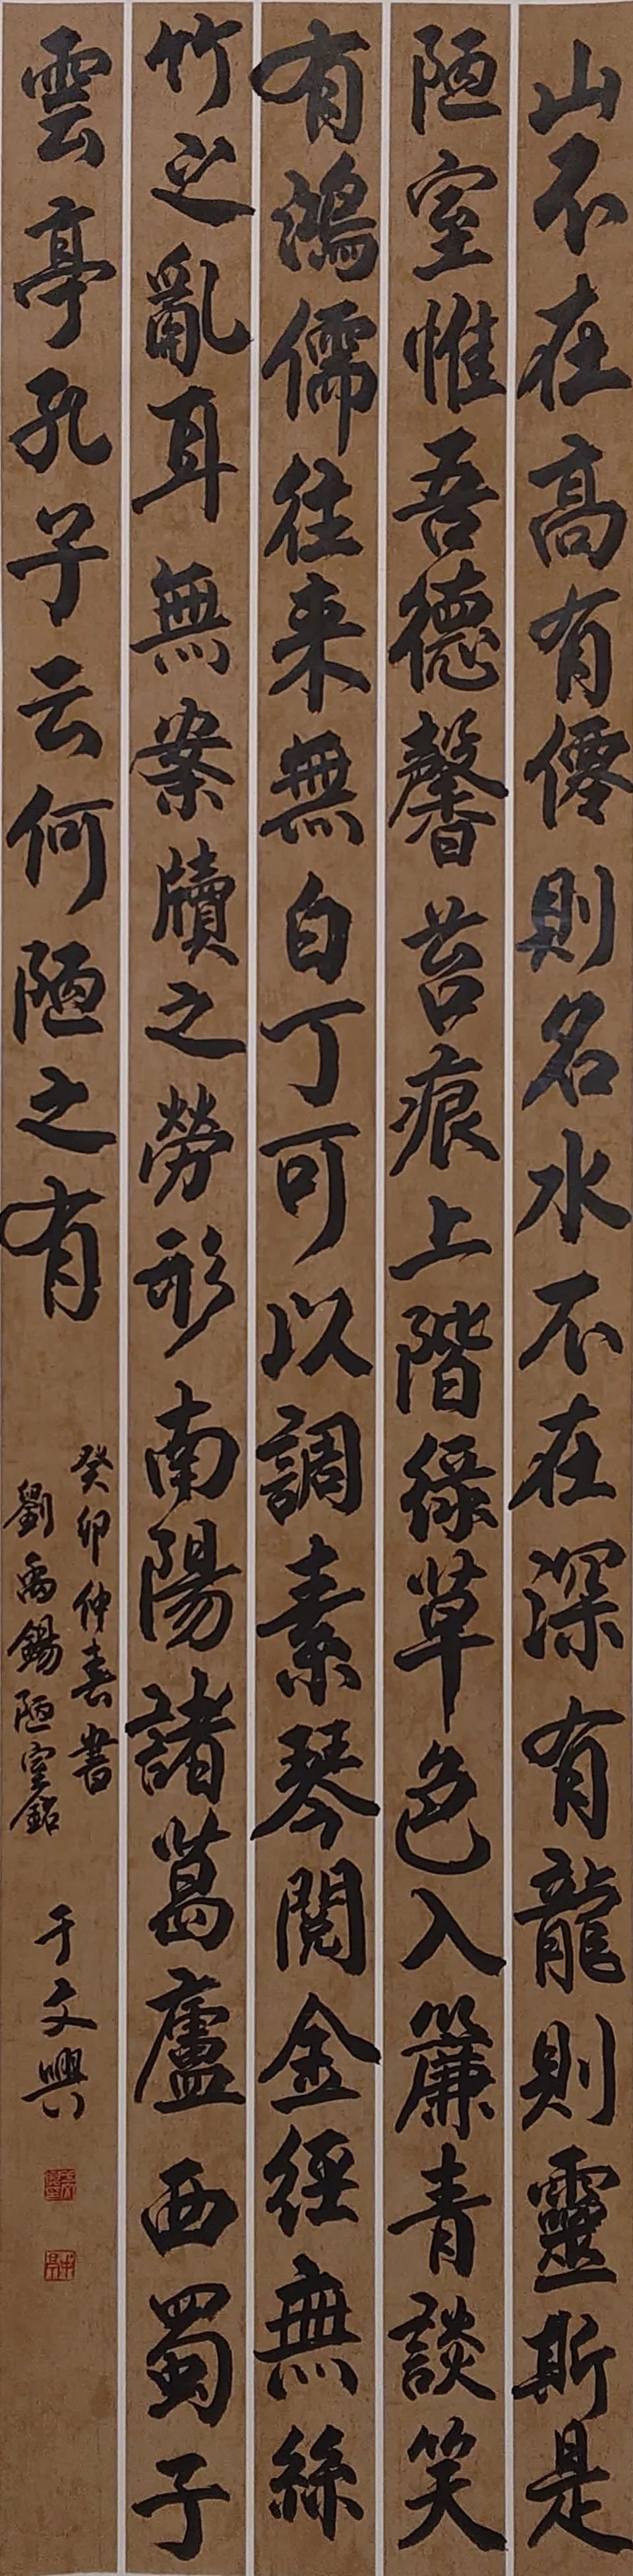 山不在高有僊則名水不在深有龍則靈斯是
陋室惟吾德馨苔痕上階綠草色入簾青談笑
有鴻儒往来無白丁可以調素琴閱金經無絲
竹之亂耳無案牘之勞形南陽諸葛廬西蜀子
雲亭孔子云何陋之有
癸卯仲春書
劉禹錫陋室銘
于文興